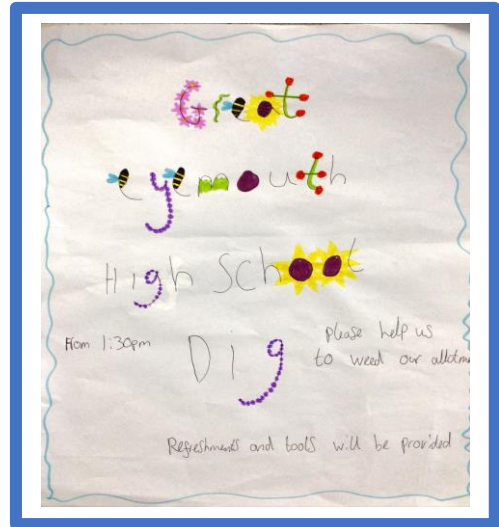 Great
eyemouth
High School
From 1:30pm
Dig
please help us
to weed our allotm
Refreshments and tools will be provided